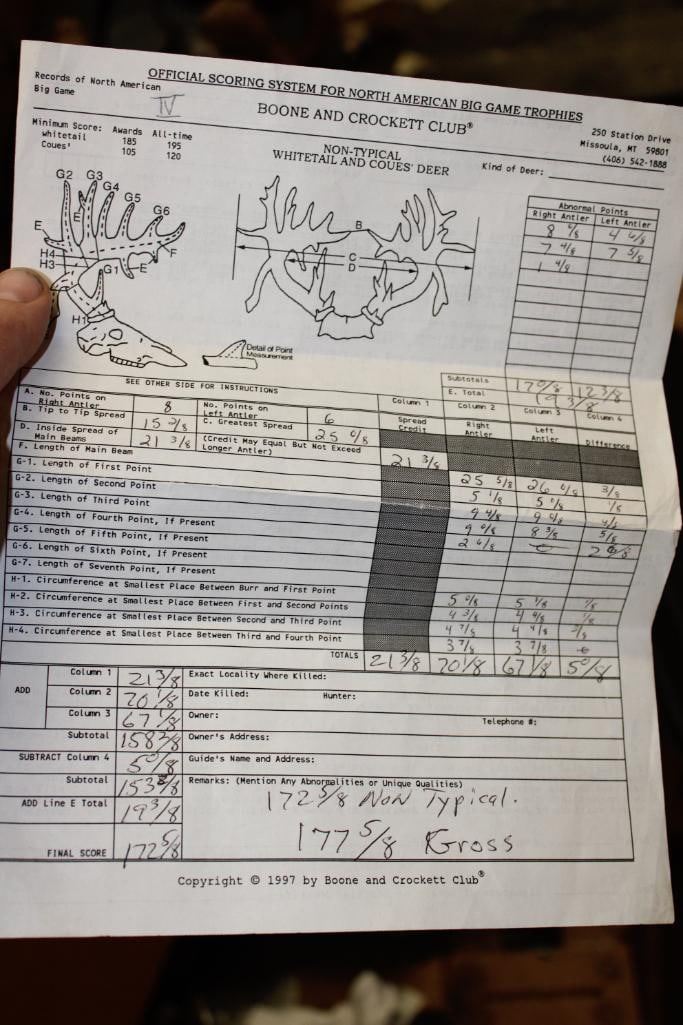 OFFICIAL SCORING SYSTEM FOR NORTH AMERICAN BIG GAME TROPHIES
Records of North American
Big Game
IV
BOONE AND CROCKETT CLUB®
250 Station Drive
Missoula, MT 59801
(406) 542-1888
Minimum Score: Awards All-time
whitetail 185 195
Coues' 105 120
NON-TYPICAL
WHITETAIL AND COUES' DEER
Kind of Deer:
Abnormal Points
Right Antler Left Antler
8 4 6/8
7 4/8 7 5/8
1 4/8
G2 G3
G4
G5
G6
E
E
F
H4
H3
G1
E
H1
B
C
D
Detail of Point
Measurement
Subtotals 17 0/8 12 3/8
E. Total 19 3/8
SEE OTHER SIDE FOR INSTRUCTIONS
Column 1 Column 2 Column 3 Column 4
A. No. Points on
Right Antler 8
No. Points on
Left Antler 6
Spread
Credit
Right
Antler
Left
Antler
Difference
B. Tip to Tip Spread 15 C. Greatest Spread 25 0/8
D. Inside Spread of
Main Beams 21 3/8
(Credit May Equal But Not Exceed
Longer Antler) 21 3/8
F. Length of Main Beam 25 5/8 26 0/8 3/8
G-1. Length of First Point 5 1/8 5 0/8 1/8
G-2. Length of Second Point 9 4/8 9
G-3. Length of Third Point 9 0/8 8 3/8 5/8
G-4. Length of Fourth Point, If Present 2 6/8 2 6/8
G-5. Length of Fifth Point, If Present
G-6. Length of Sixth Point, If Present
G-7. Length of Seventh Point, If Present
H-1. Circumference at Smallest Place Between Burr and First Point 5 0/8 5 1/8 1/8
H-2. Circumference at Smallest Place Between First and Second Points 4 3/8 4 4/8 1/8
H-3. Circumference at Smallest Place Between Second and Third Point 4 7/8 4 4/8 3/8
H-4. Circumference at Smallest Place Between Third and Fourth Point 3 7/8 3 7/8
TOTALS 21 3/8 70 1/8 67 1/8 5 0/8
ADD
Column 1 21 3/8 Exact Locality Where Killed:
Column 2 70 1/8 Date Killed: Hunter:
Column 3 67 1/8 Owner: Telephone #:
Subtotal 158 Owner's Address:
SUBTRACT Column 4 5 0/8 Guide's Name and Address:
Subtotal 153 Remarks: (Mention Any Abnormalities or Unique Qualities)
ADD Line E Total 19 3/8 172 5/8 Non Typical.
FINAL SCORE 172 5/8 177 5/8 Gross
Copyright © 1997 by Boone and Crockett Club®